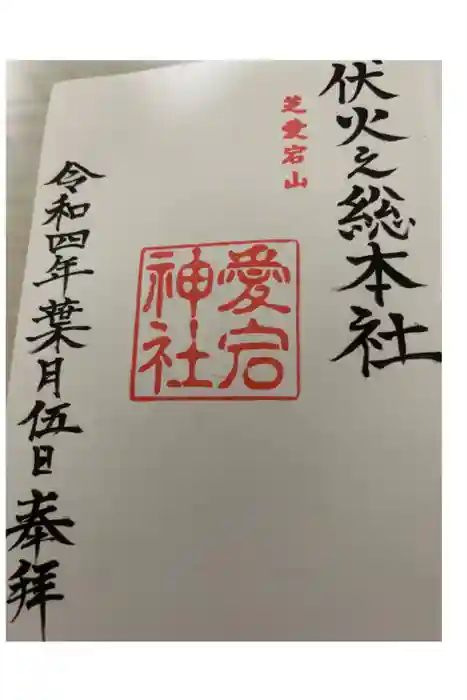 伏火之総本社
芝愛宕山
愛宕
神社
令和四年葉月伍日奉拝